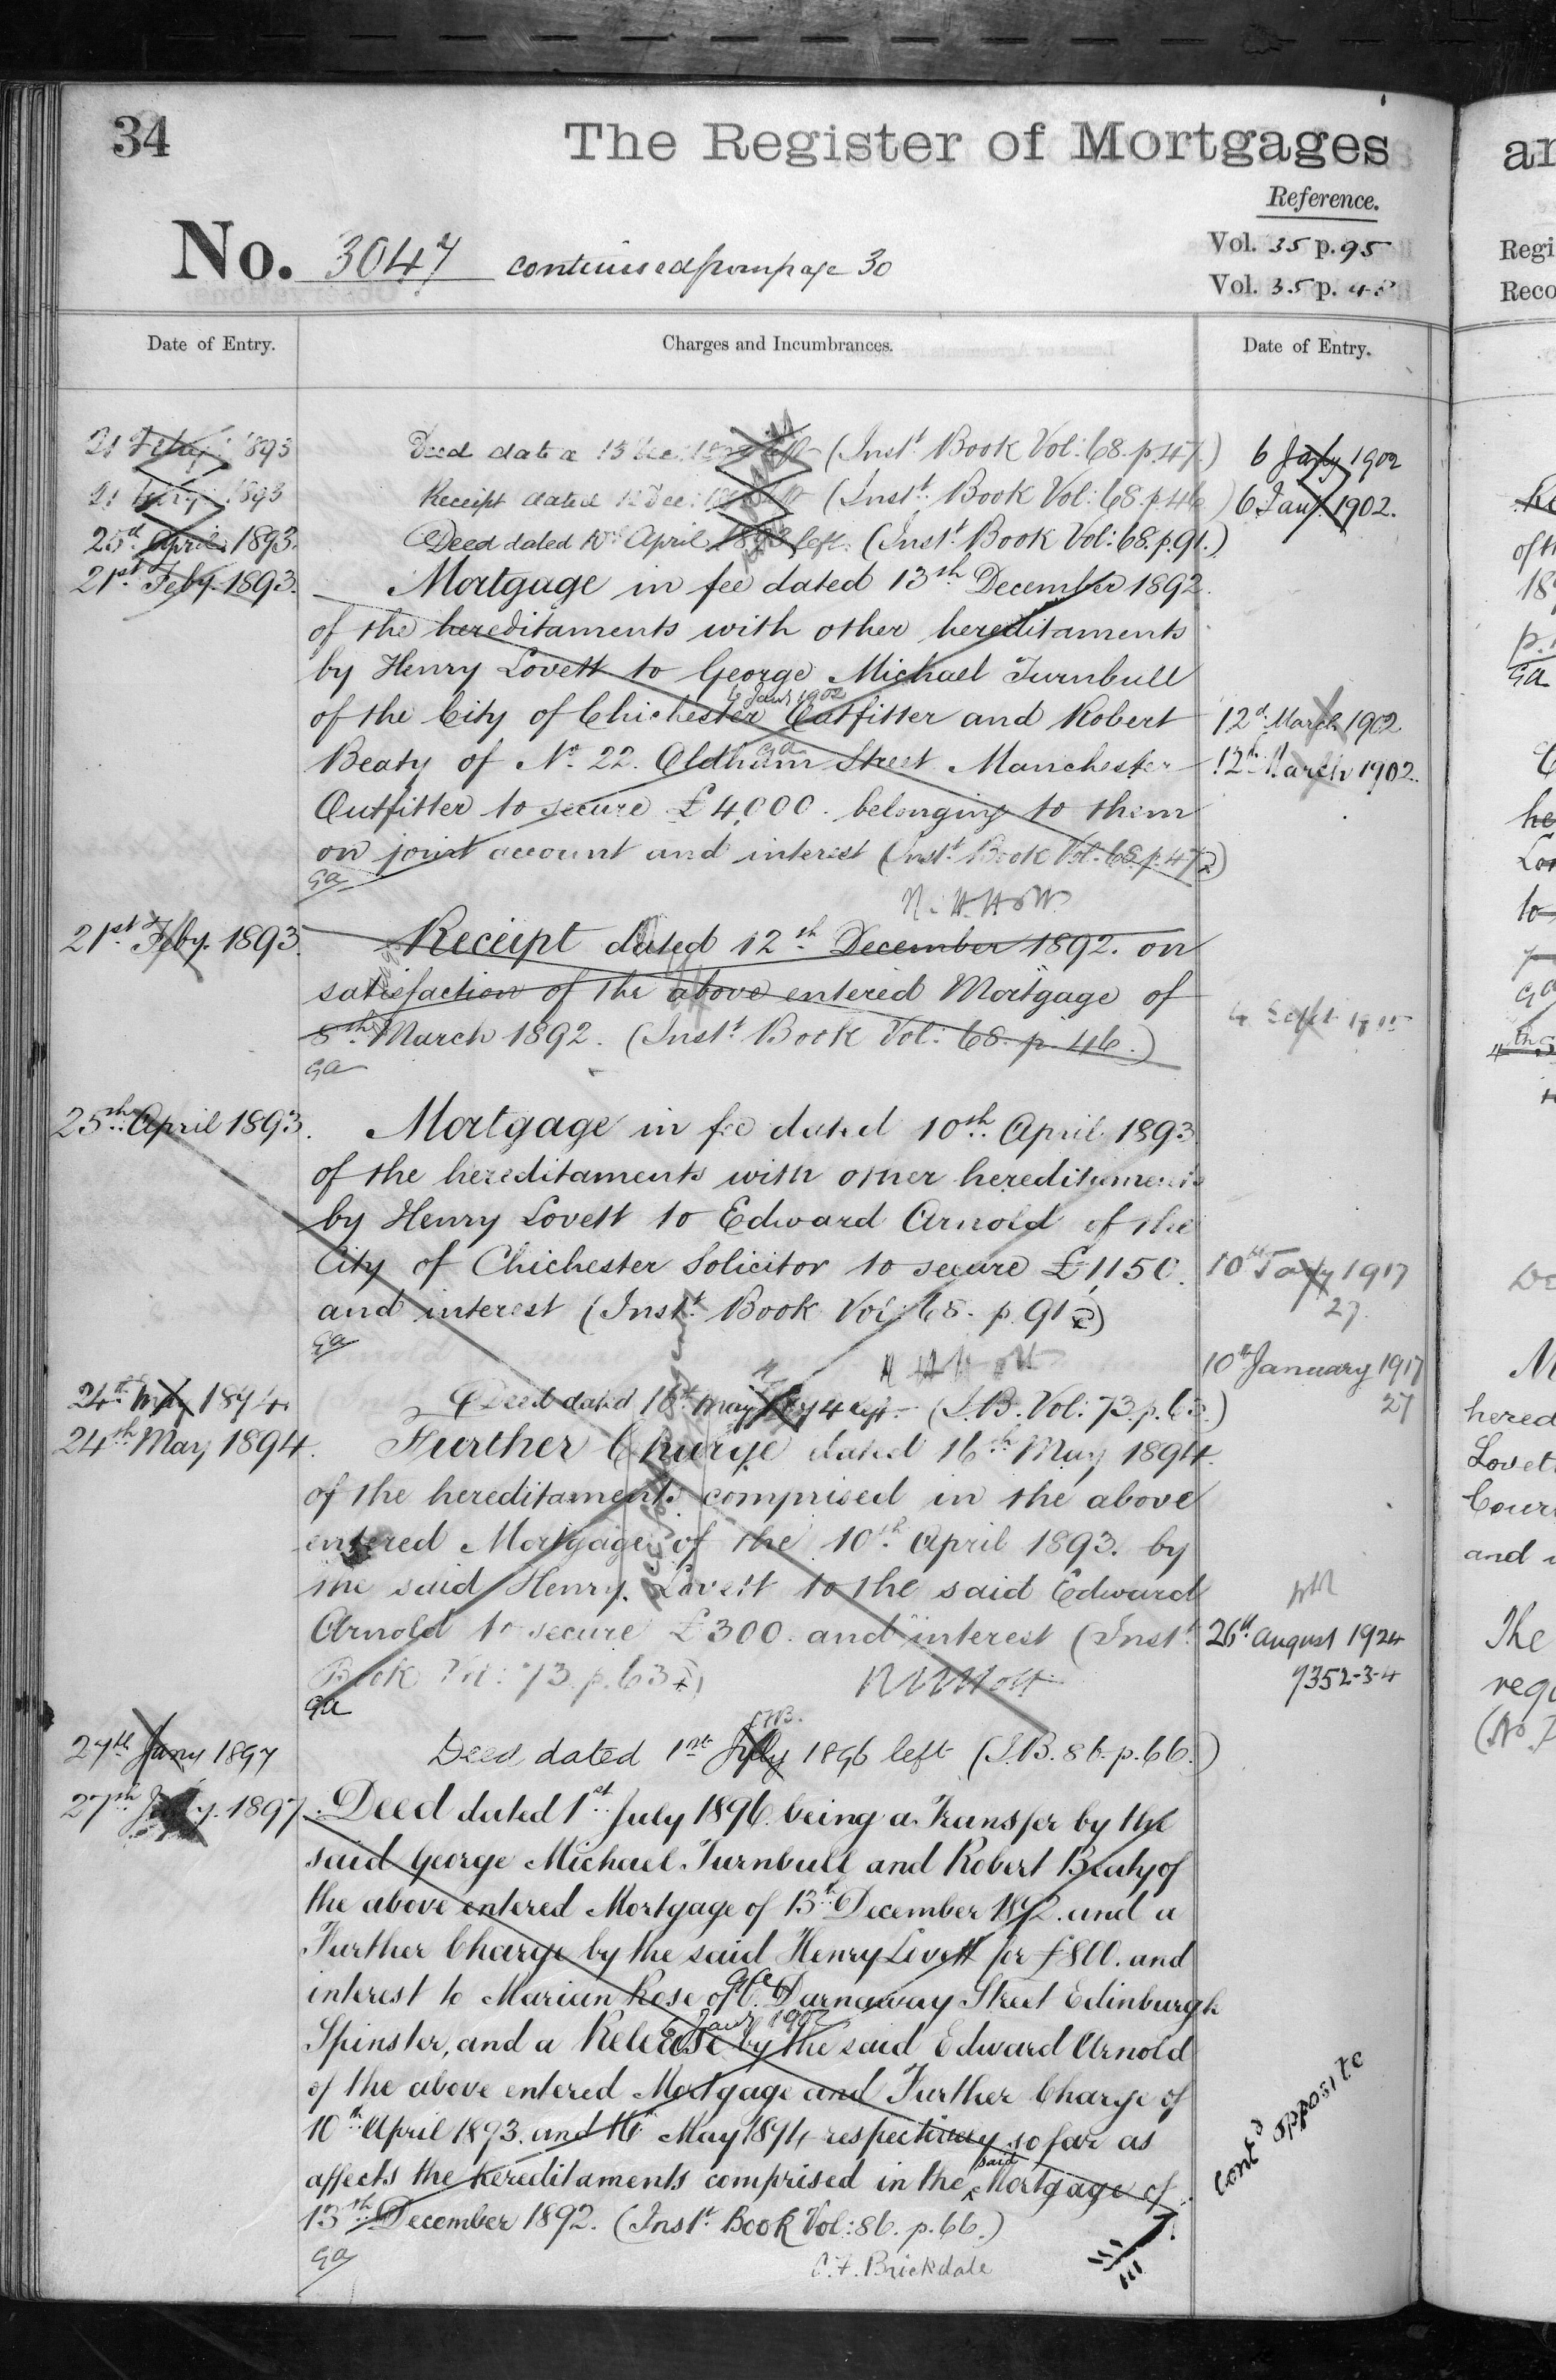 34
The Register of Mortgages
Reference.
Vol. 35 p. 95
Vol. 35 p. 48
No. 3047 continued from page 30
Date of Entry.
Charges and Incumbrances.
Date of Entry.
21 Feby 1893 Deed dated 13 Dec: left (Inst. Book Vol: 68. p. 47.) 6 Jany 1902
21 Feby 1893 Receipt dated 12 Dec: (Inst. Book Vol: 68. p. 46) 6 Jany 1902.
25th April 1893. Deed dated 10th April 1893 left. (Inst. Book Vol: 68. p. 91.)
21st Feby. 1893. Mortgage in fee dated 13th December 1892.
of the hereditaments with other hereditaments
by Henry Lovett to George Michael Turnbull
6 Jany 1902
of the City of Chichester Outfitter and Robert 12th March 1902
Beaty of No. 22. Oldham Street Manchester 12th March 1902.
Outfitter to secure £4,000. belonging to them
on joint account and interest (Inst. Book Vol. 68. p. 47)
ga
21st Feby. 1893. Receipt dated 12th December 1892. on
satisfaction of the above entered Mortgage of
8th March 1892. (Inst. Book Vol: 68. p. 46.)
4 Sept
ga
25th April 1893. Mortgage in fee dated 10th April 1893.
of the hereditaments with other hereditaments
by Henry Lovett to Edward Arnold of the
City of Chichester Solicitor to secure £1150. 10th Jany 1917
27
and interest (Inst. Book Vol: 68. p. 91)
ga
10th January 1917
27
24th May 1894. Deed dated 16th May 94 left (I.B. Vol: 73. p. 63.)
24th May 1894. Further Charge dated 16th May 1894.
of the hereditaments comprised in the above
entered Mortgage of the 10th April 1893. by
the said Henry Lovett to the said Edward
Arnold to secure £300. and interest (Inst. 26th August 1924
Book Vol: 73. p. 63) 7352-3-4
ga
27th Jany 1897 Deed dated 1st July 1896 left (I.B. 86. p. 66.)
27th 1897. Deed dated 1st July 1896. being a Transfer by the
said George Michael Turnbull and Robert Beaty of
the above entered Mortgage of 13th December 1892. and a
Further Charge by the said Henry Lovett for £800. and
interest to Marian Rose of 6. Darnaway Street Edinburgh
6 Jany 1902
Spinster, and a Release by the said Edward Arnold
of the above entered Mortgage and Further Charge of
10th April 1893. and 16 May 1894 respectively so far as
affects the hereditaments comprised in the said Mortgage of
13th December 1892. (Inst. Book Vol: 86. p. 66.)
ga
C. F. Brickdale
Contd opposite
ar
Regi
Reco